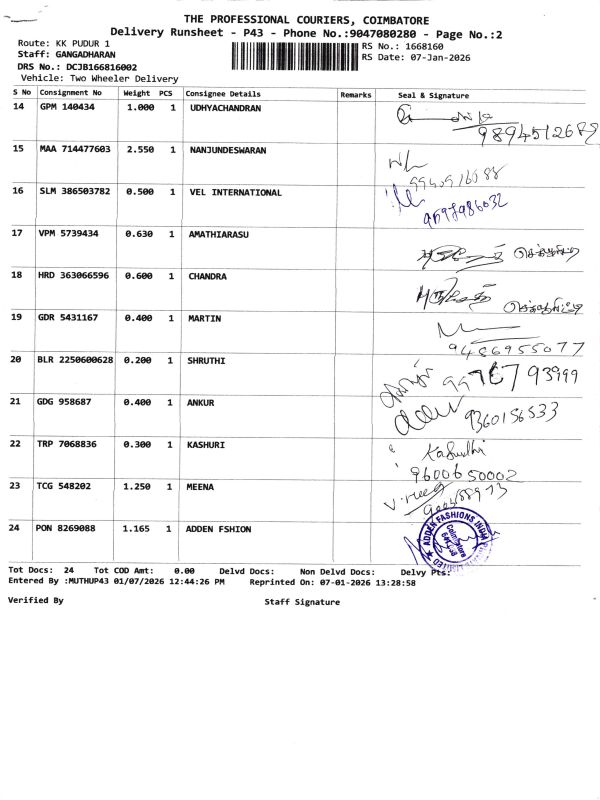 THE PROFESSIONAL COURIERS, COIMBATORE
Delivery Runsheet - P43 - Phone No.:9047080280 - Page No.:2
Route: KK PUDUR 1
Staff: GANGADHARAN
DRS No.: DCJB166816002
Vehicle: Two Wheeler Delivery
RS No.: 1668160
RS Date: 07-Jan-2026
S No Consignment No Weight PCS Consignee Details Remarks Seal & Signature
14 GPM 140434 1.000 1 UDHYACHANDRAN
9894512689
15 MAA 714477603 2.550 1 NANJUNDESWARAN
16 SLM 386503782 0.500 1 VEL INTERNATIONAL
17 VPM 5739434 0.630 1 AMATHIARASU
18 HRD 363066596 0.600 1 CHANDRA
19 GDR 5431167 0.400 1 MARTIN
9486955077
20 BLR 2250600628 0.200 1 SHRUTHI
99767 93999
21 GDG 958687 0.400 1 ANKUR
9360156533
22 TRP 7068836 0.300 1 KASHURI
9600650002
23 TCG 548202 1.250 1 MEENA
24 PON 8269088 1.165 1 ADDEN FSHION
ADDEN FASHIONS INDIA
Coimbatore
Tot Docs: 24 Tot COD Amt: 0.00 Delvd Docs: Non Delvd Docs: Delvy Pts:
Entered By :MUTHUP43 01/07/2026 12:44:26 PM Reprinted On: 07-01-2026 13:28:58
Verified By Staff Signature